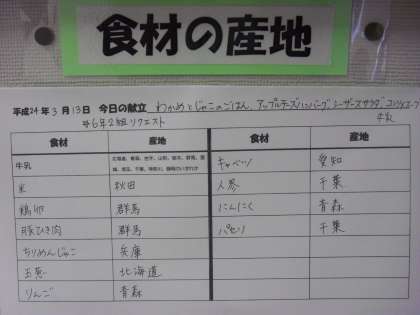 食材の産地
平成24年3月13日 今日の献立 わかめとじゃこのごはん、アップルチーズハンバーグ シーザーサラダ コンソメスープ
☆6年2組リクエスト 牛乳
食材 産地 食材 産地
牛乳 キャベツ 愛知
米 秋田 人参 千葉
鶏卵 群馬 にんにく 青森
豚ひき肉 群馬 パセリ 千葉
ちりめんじゃこ 兵庫
玉葱 北海道
りんご 青森